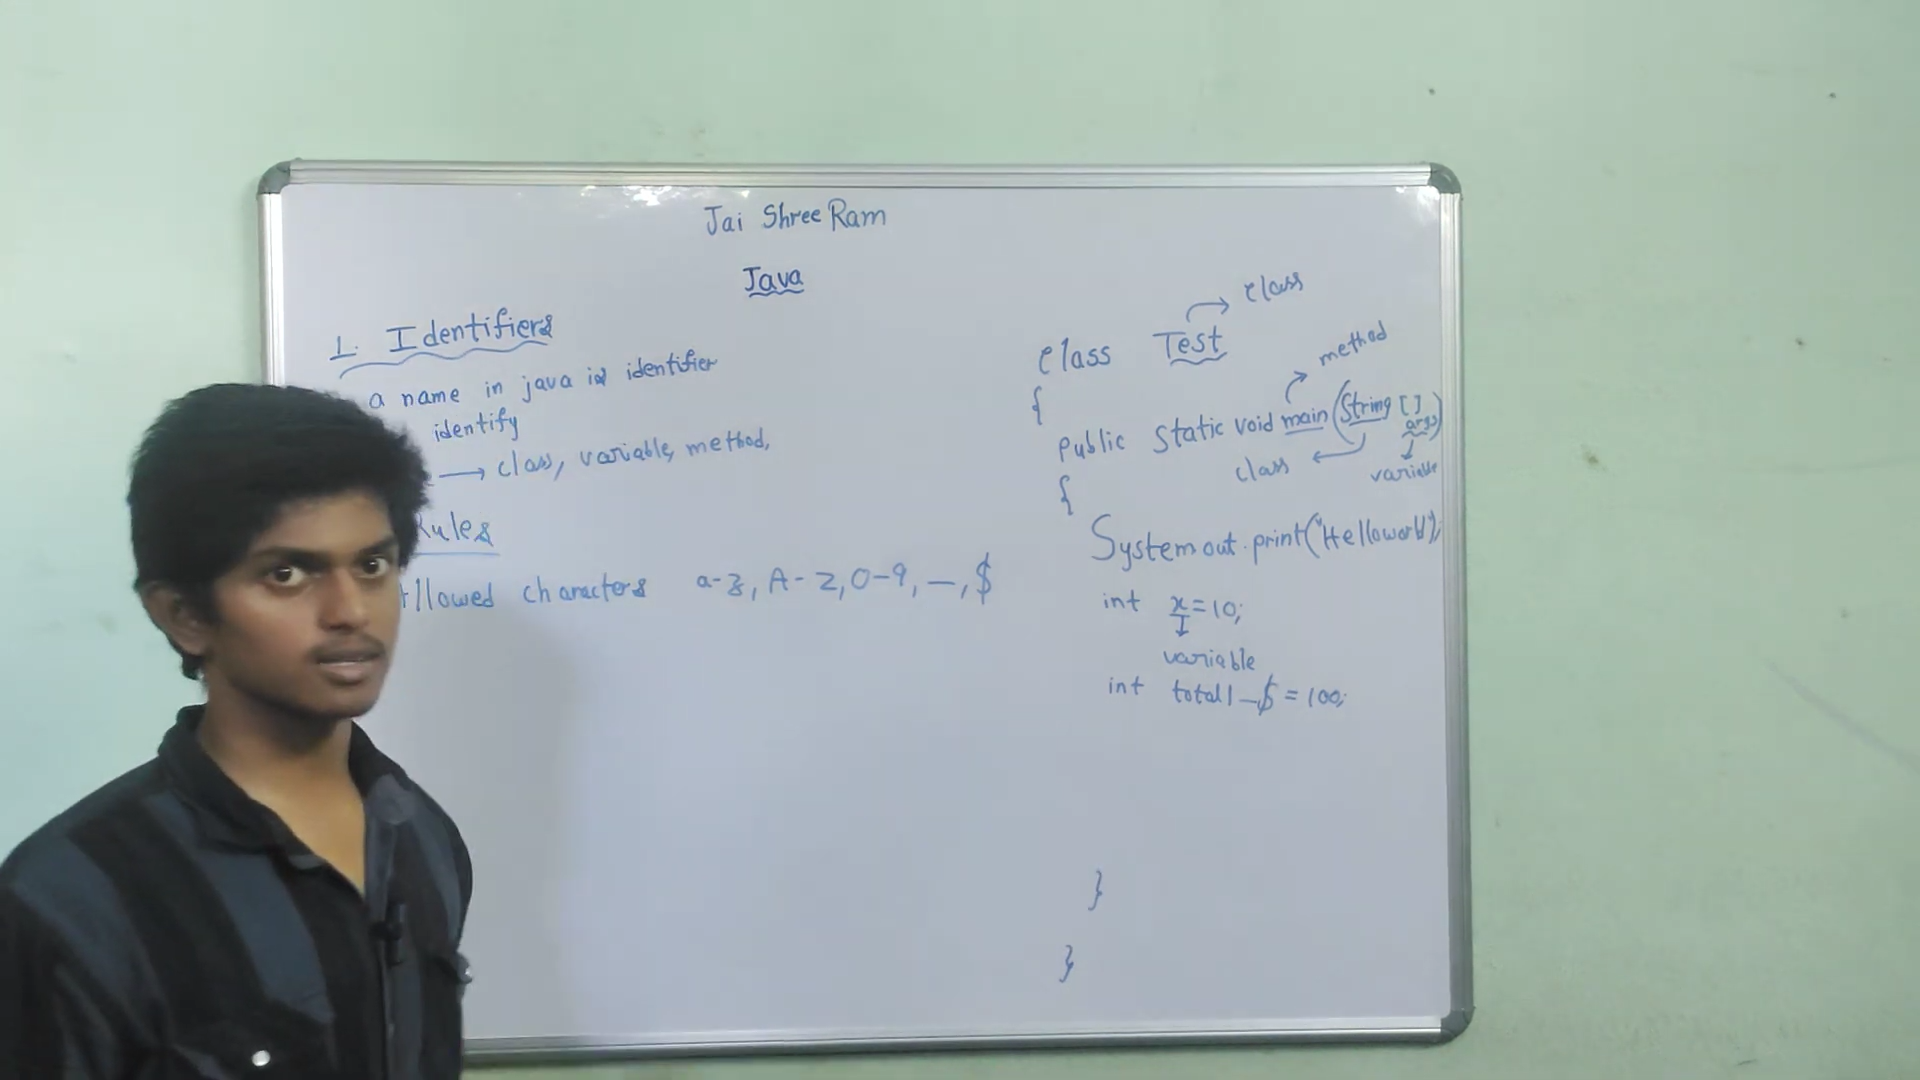 Jai Shree Ram
Java
1. Identifiers
a name in java is identifier
identify
→ class, variable, method,
Rules
Allowed characters a-z, A-Z, 0-9, _, $
→ class
class Test
→ method
{
public static void main (String [] args)
class ← variable
{
System out.print("Helloworld");
int x=10;
variable
int total1_$ = 100;
}
}